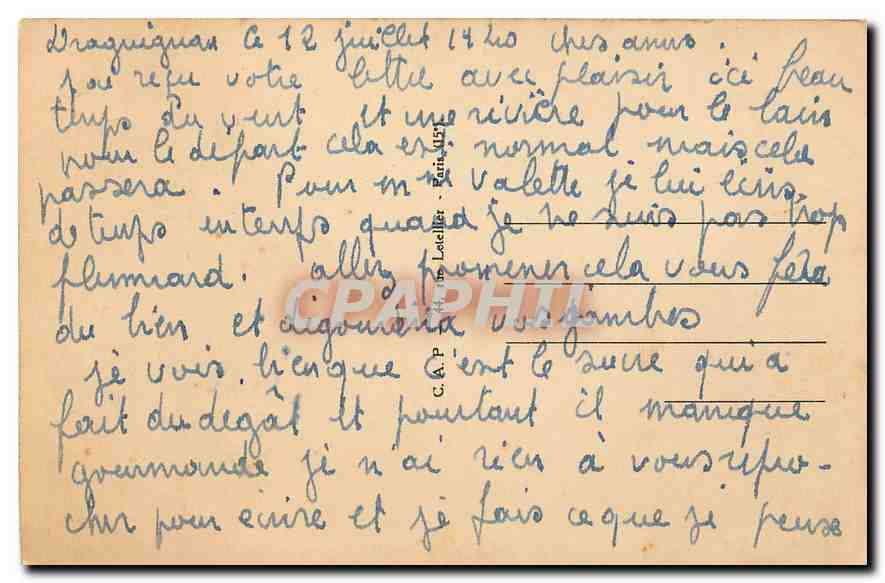 Draguignan le 12 juillet 1920 chers amis.
j'ai reçu votre lettre avec plaisir ici beau
temps du vent et une rivière pour le bain
pour le départ cela est normal mais cela
passera. Pour Mme Valette je lui écris
de temps en temps quand je ne suis pas trop
flemmard. allez promener cela vous fera
du bien et digourdira vos jambes
je vois bien que c'est le sucre qui a
fait du degât et pourtant il manque
gourmande je n'ai rien à vous repro-
cher pour écrire et je fais ce que je pense
C.A.P 44, rue Letellier - Paris (15e).
CPAPHIL